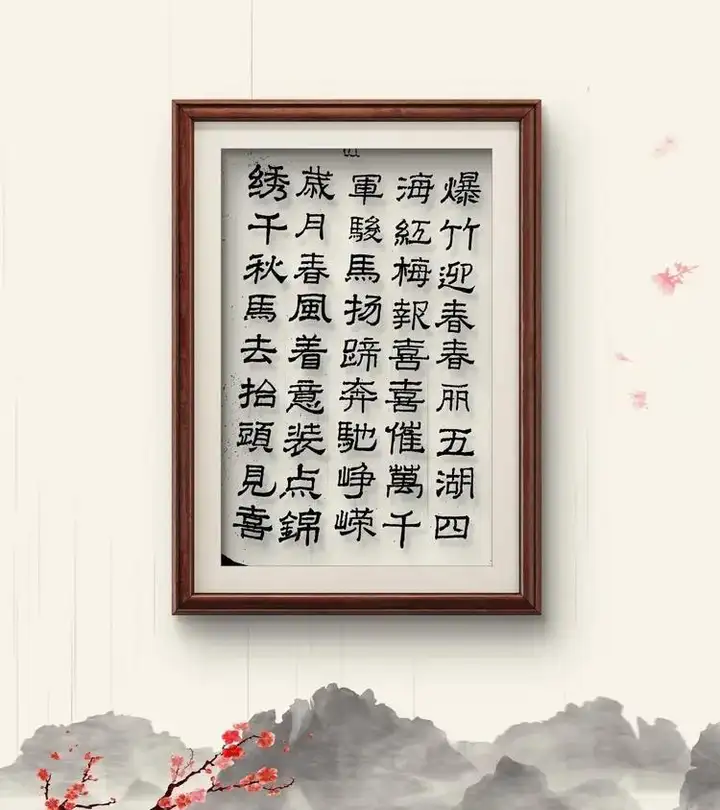 爆竹迎春春丽五湖四
海紅梅報喜喜催萬千
軍駿馬扬蹄奔馳峥嵘
歳月春風着意装点錦
绣千秋馬去抬頭見喜